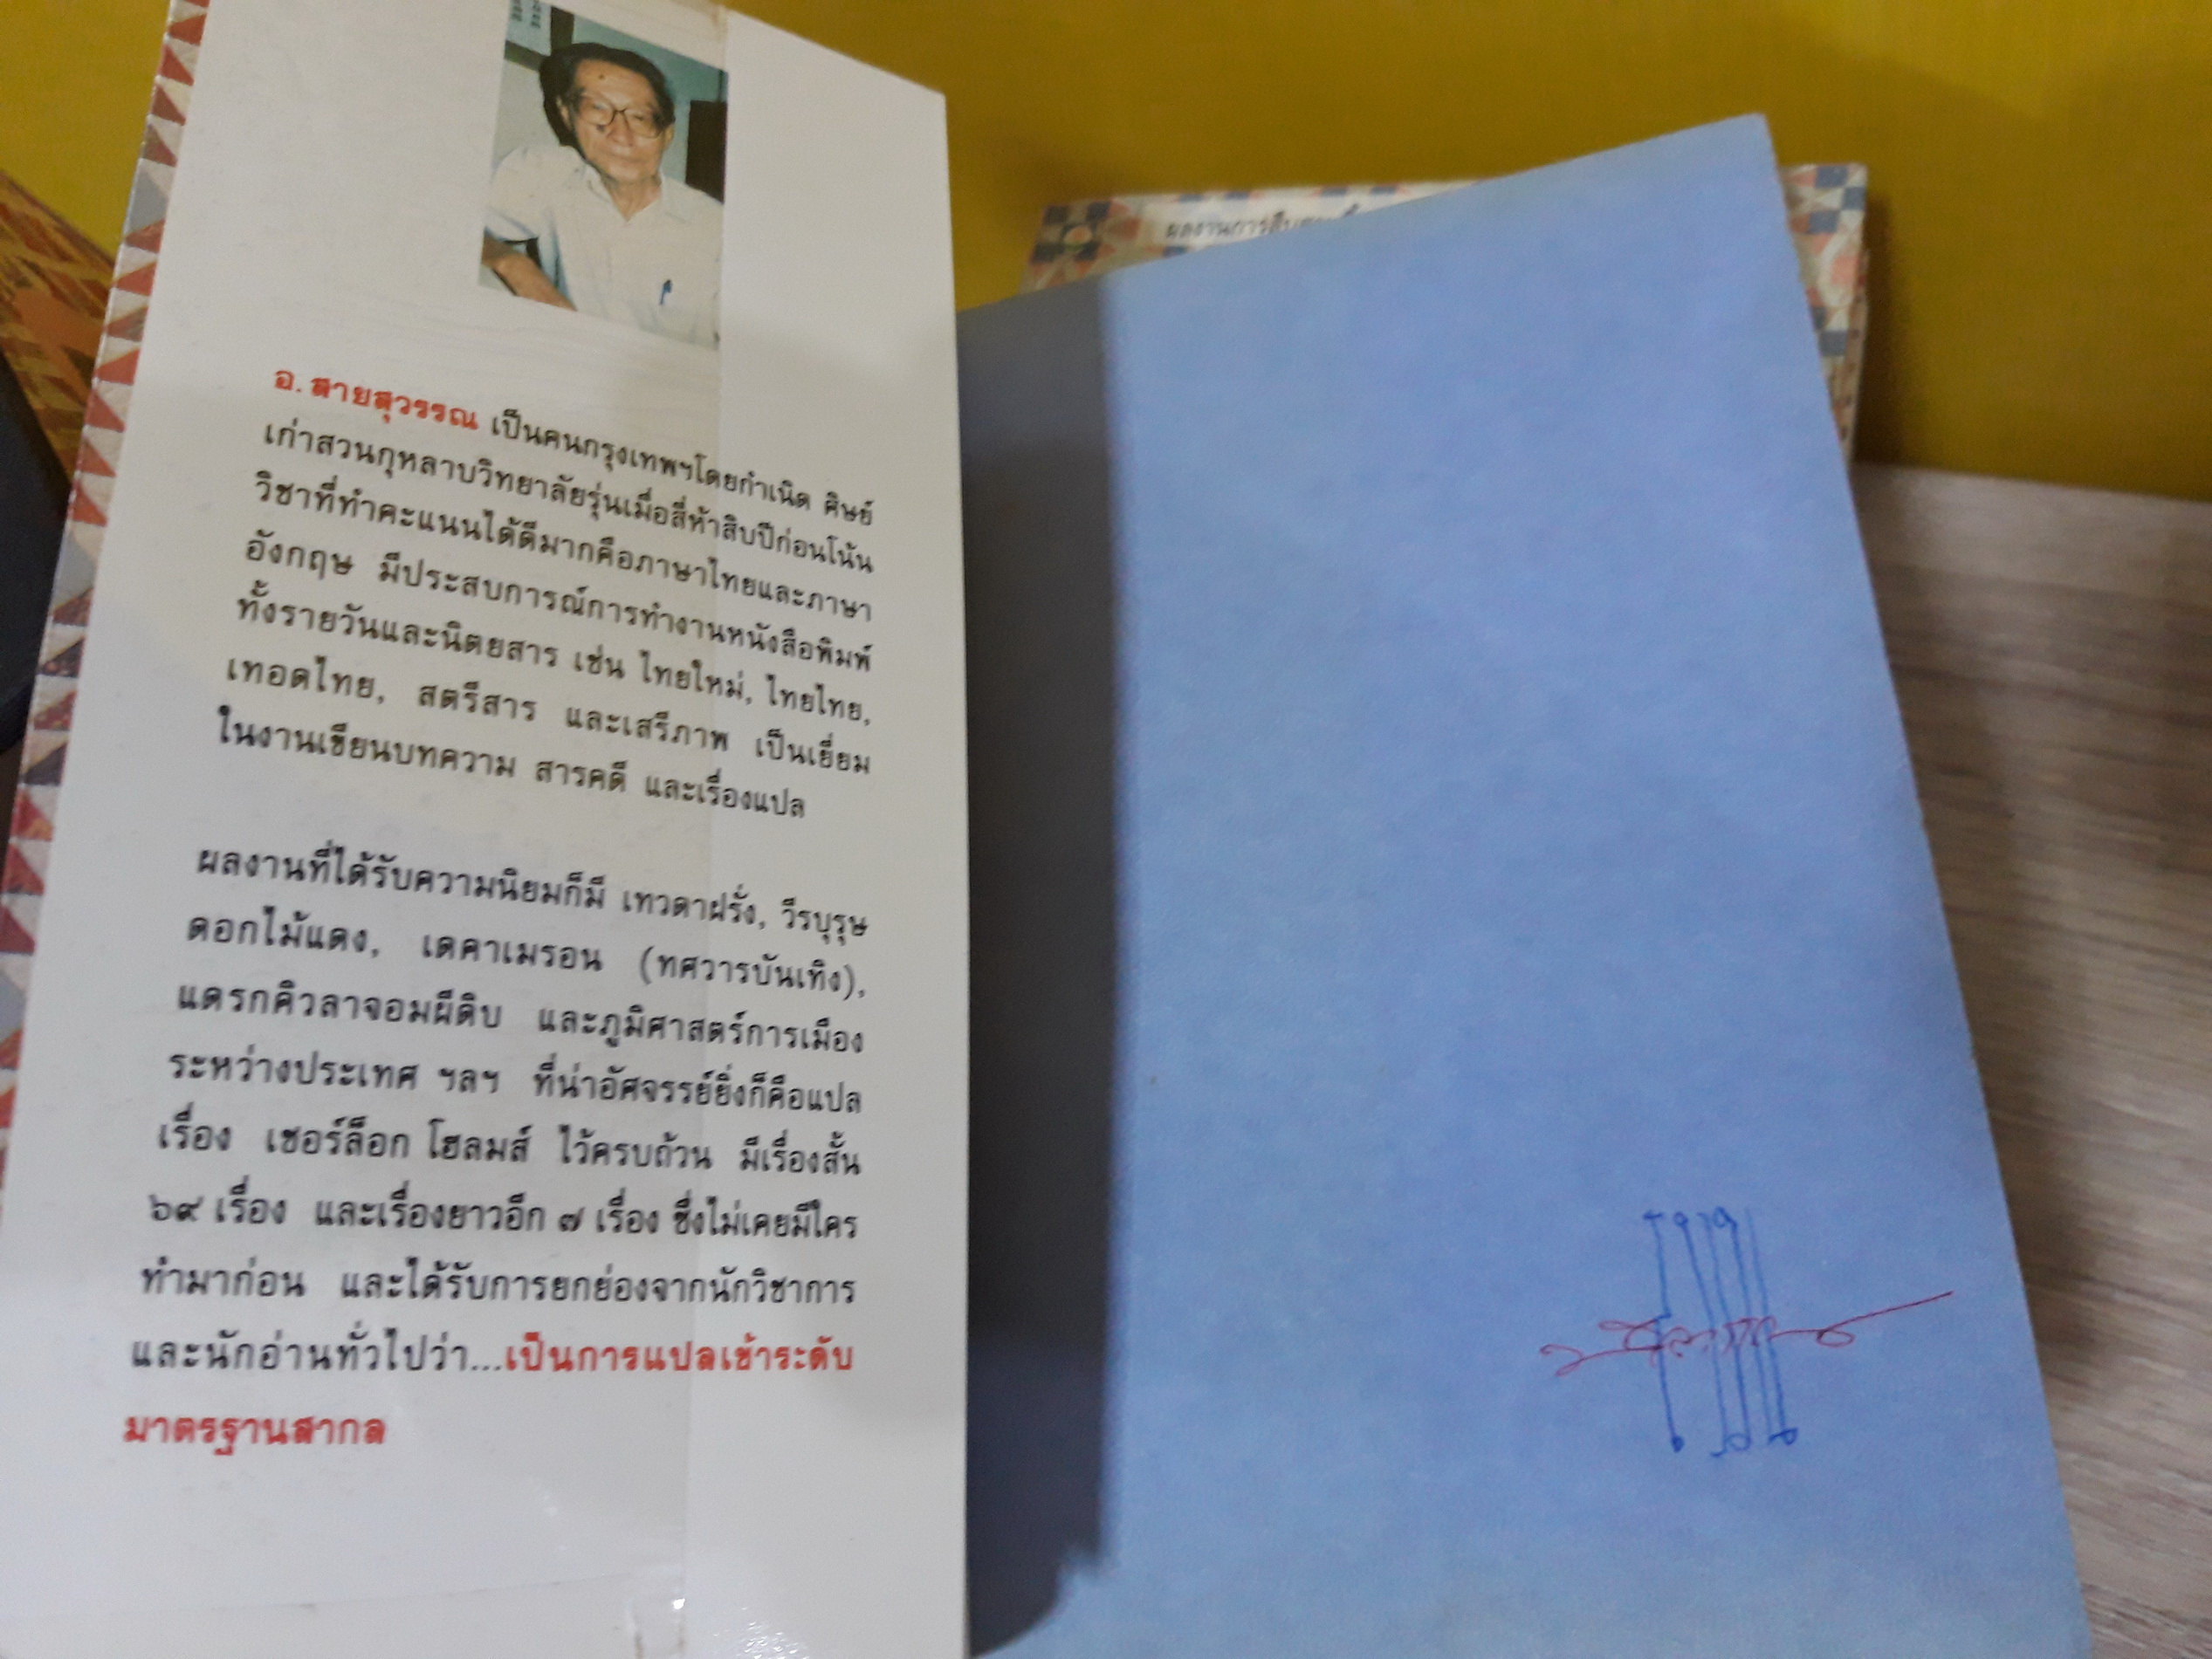 อ. สายสุวรรณ เป็นคนกรุงเทพฯโดยกำเนิด ศิษย์
เก่าสวนกุหลาบวิทยาลัยรุ่นเมื่อสี่ห้าสิบปีก่อนโน้น
วิชาที่ทำคะแนนได้ดีมากคือภาษาไทยและภาษา
อังกฤษ มีประสบการณ์การทำงานหนังสือพิมพ์
ทั้งรายวันและนิตยสาร เช่น ไทยใหม่, ไทยไทย,
เทอดไทย, สตรีสาร และเสรีภาพ เป็นเยี่ยม
ในงานเขียนบทความ สารคดี และเรื่องแปล
ผลงานที่ได้รับความนิยมก็มี เทวดาฝรั่ง, วีรบุรุษ
ดอกไม้แดง, เดคาเมรอน (ทศวารบันเทิง),
แดรกคิวลาจอมผีดิบ และภูมิศาสตร์การเมือง
ระหว่างประเทศ ฯลฯ ที่น่าอัศจรรย์ยิ่งก็คือแปล
เรื่อง เชอร์ล็อก โฮลมส์ ไว้ครบถ้วน มีเรื่องสั้น
๖๙ เรื่อง และเรื่องยาวอีก ๗ เรื่อง ซึ่งไม่เคยมีใคร
ทำมาก่อน และได้รับการยกย่องจากนักวิชาการ
และนักอ่านทั่วไปว่า...เป็นการแปลเข้าระดับ
มาตรฐานสากล
ผลงานการสืบสวน